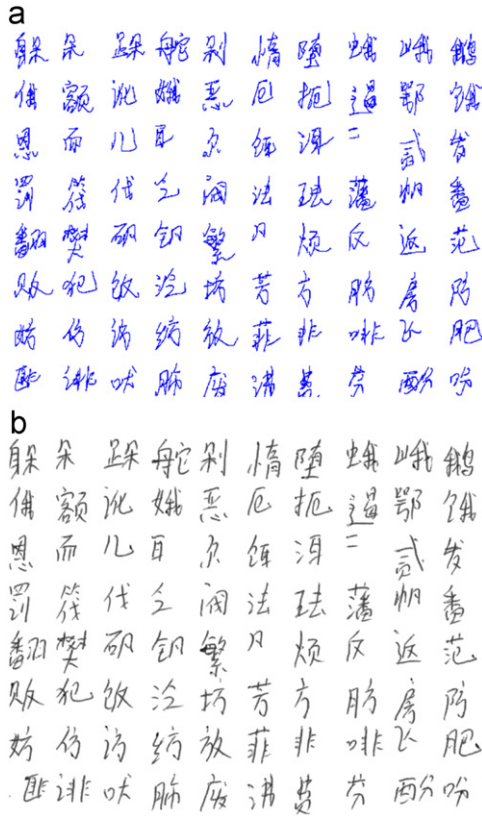 a
躲 朵 跺 舵 剁 惰 堕 蛾 峨 鹅
俄 额 讹 娥 恶 厄 扼 遏 鄂 饿
恩 而 儿 耳 尔 饵 洱 二 贰 发
罚 筏 伐 乏 阀 法 珐 藩 帆 番
翻 樊 矾 钒 繁 凡 烦 反 返 范
贩 犯 饭 泛 坊 芳 方 肪 房 防
妨 仿 访 纺 放 菲 非 啡 飞 肥
匪 诽 吠 肺 废 沸 费 芬 酚 吩
b
躲 朵 跺 舵 剁 惰 堕 蛾 峨 鹅
俄 额 讹 娥 恶 厄 扼 遏 鄂 饿
恩 而 儿 耳 尔 饵 洱 二 贰 发
罚 筏 伐 乏 阀 法 珐 藩 帆 番
翻 樊 矾 钒 繁 凡 烦 反 返 范
贩 犯 饭 泛 坊 芳 方 肪 房 防
妨 仿 访 纺 放 菲 非 啡 飞 肥
匪 诽 吠 肺 废 沸 费 芬 酚 吩